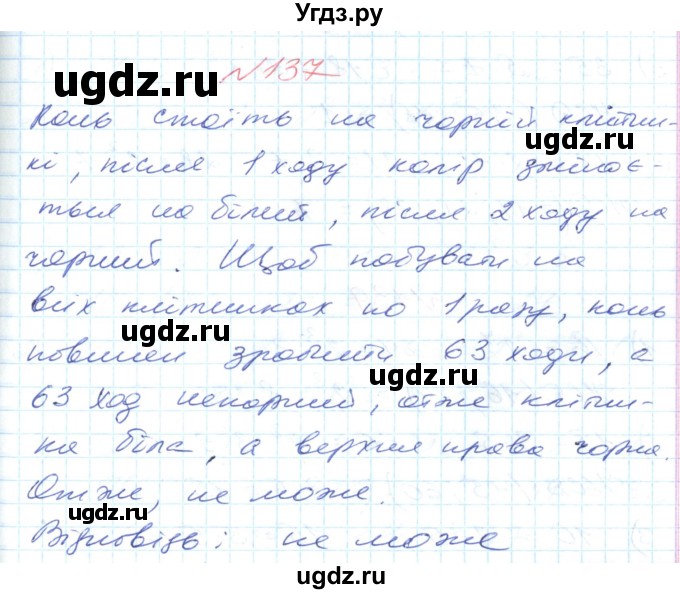 Угдз.ру
№137
ugdz.ru
Конь стоїть на чорній клітин-
ugdz.ru
кі, після 1 ходу колір змінює-
ться на білий, після 2 ходу на
чорний. Щоб побувати на
ugdz.ru
всіх клітинках по 1 разу, конь
ugdz.ru
повинен зробити 63 ходи, а
ugdz.ru
63 ход непарний, отже кліти-
на біла, а верхня права чорна.
Отже, не може.
ugdz.ru
Відповідь: не може
ugdz.ru